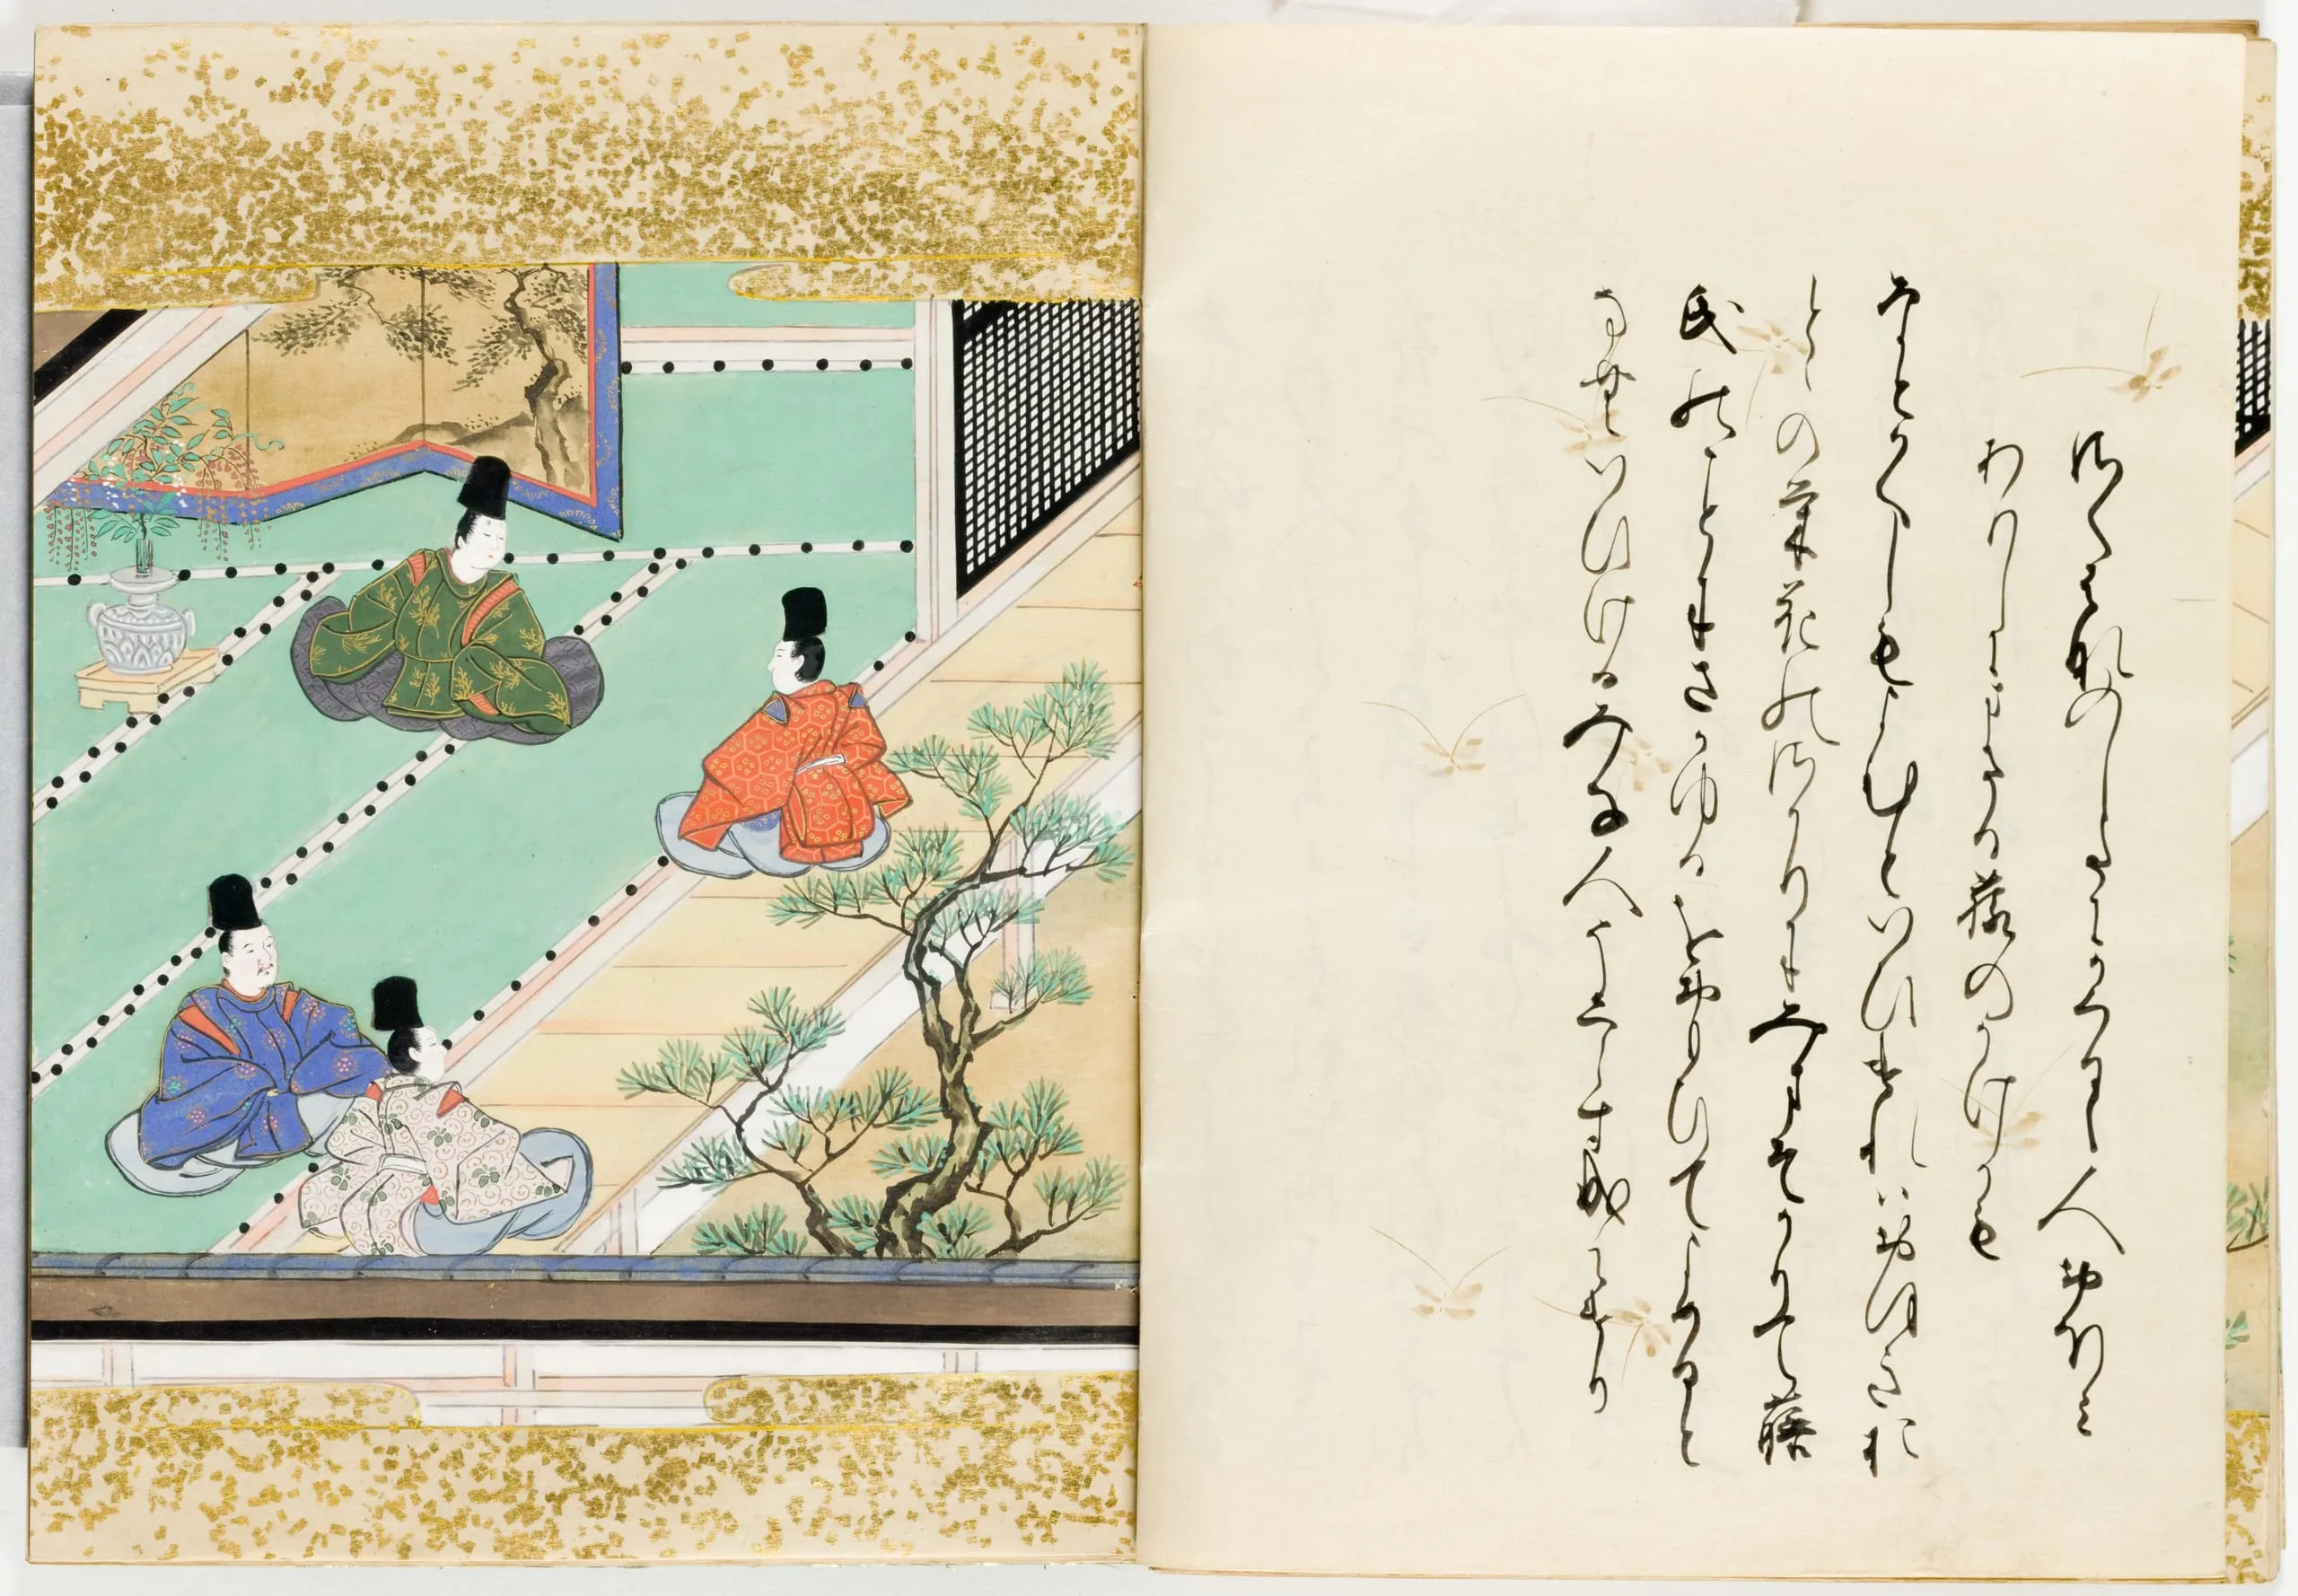 さく花のしたにかくるゝ人おほみ
ありしにまさる藤のかけかも
なとかくしもよむといひけれはおほきおと
とゝの栄花の御さかりにみまそかりて藤
氏のことにさかゆるをおもひてよめると
なむいひけるみな人そしらすなりにけり